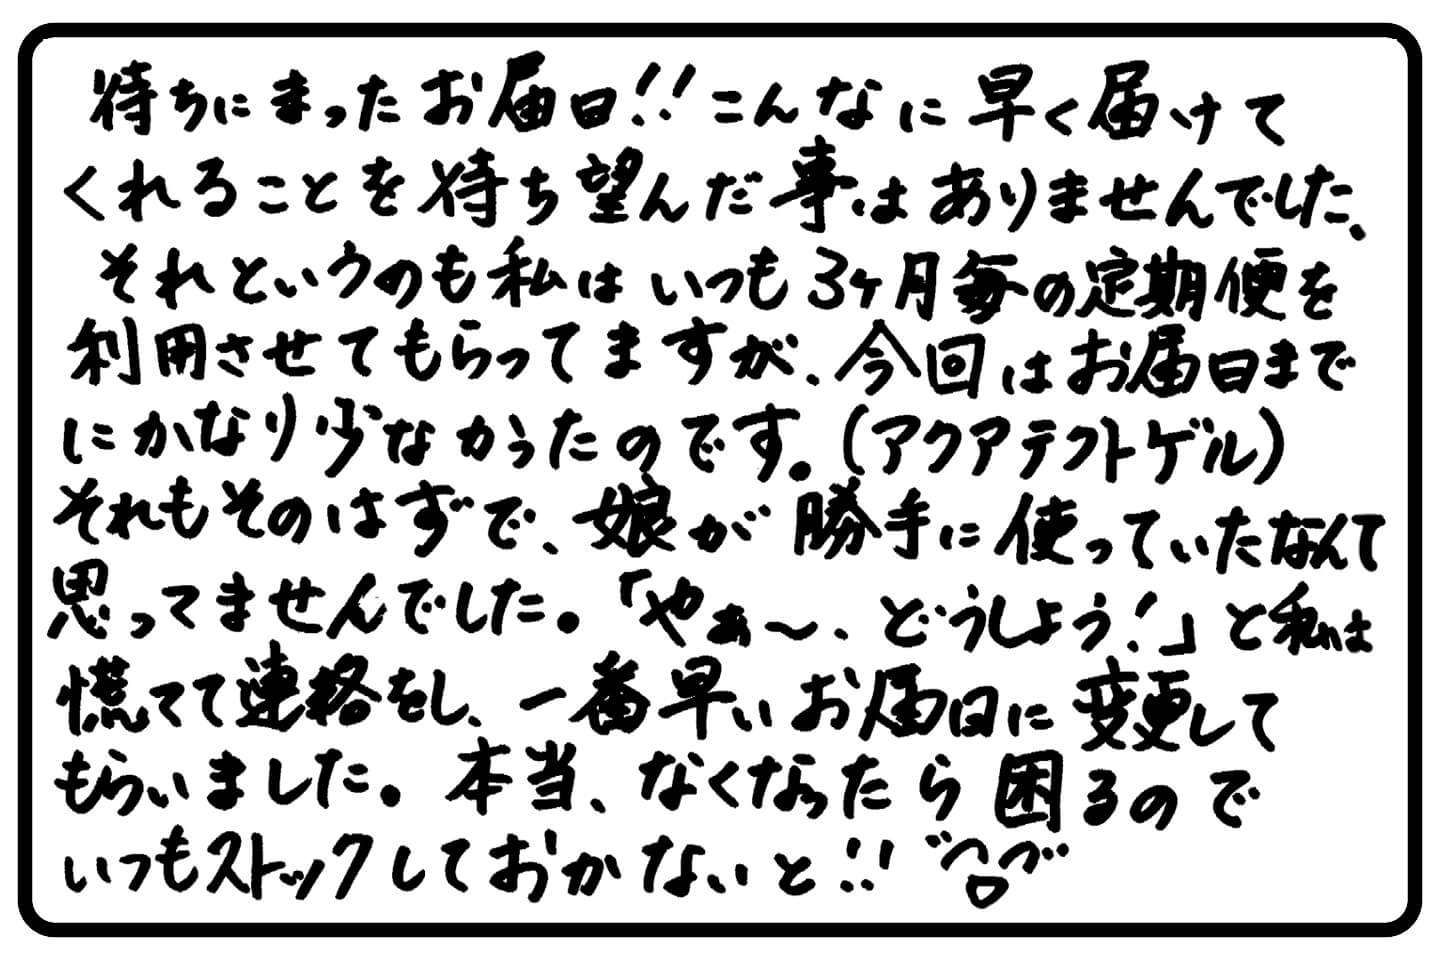 待ちにまったお届日!!こんなに早く届けて
くれることを待ち望んだ事はありませんでした、
それというのも私はいつも3ヶ月毎の定期便を
利用させてもらってますが、今回はお届日まで
にかなり少なかったのです。(アクアテクトゲル)
それもそのはずで、娘が勝手に使っていたなんて
思ってませんでした。「やぁ〜、どうしよう!」と私は
慌てて連絡をし、一番早いお届日に変更して
もらいました。本当、なくなったら困るので
いつもストックしておかないと!!